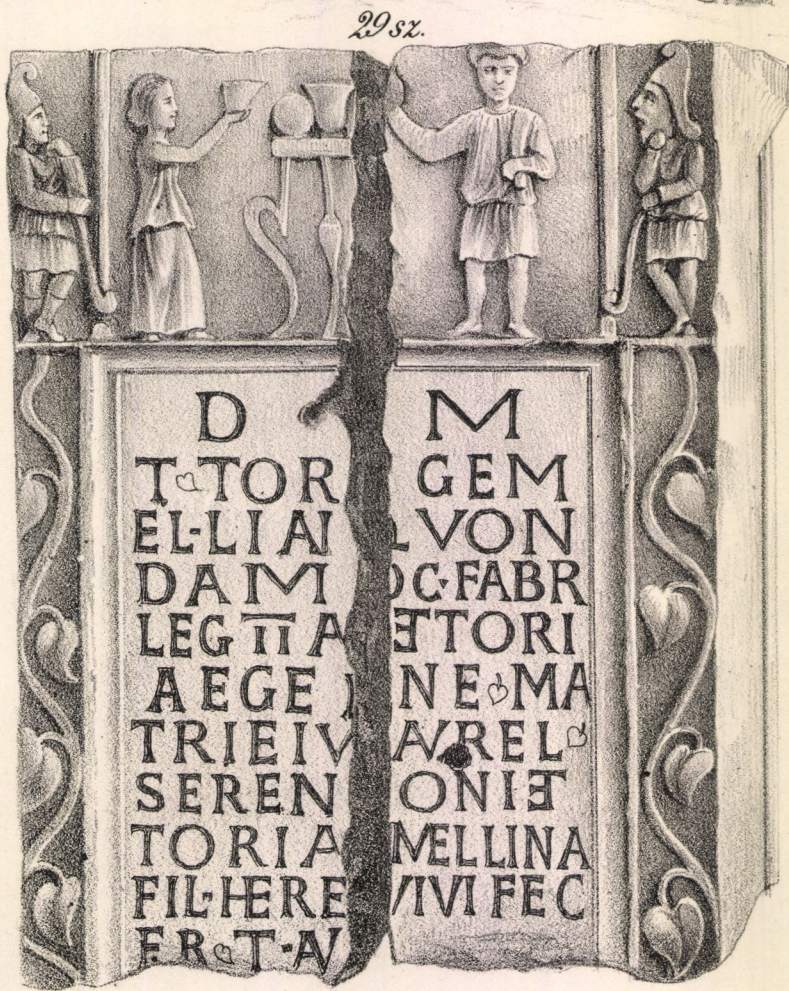 29 sz.
D M
T TOR GEM
EL·LIAN VON
DAM OC·FABR
LEG II A ETTORI
AEGE NE MA
TRIEIV AVREL
SEREN ONIET
TORIA MELLINA
FIL·HERE VIVI FEC
ER T·AV